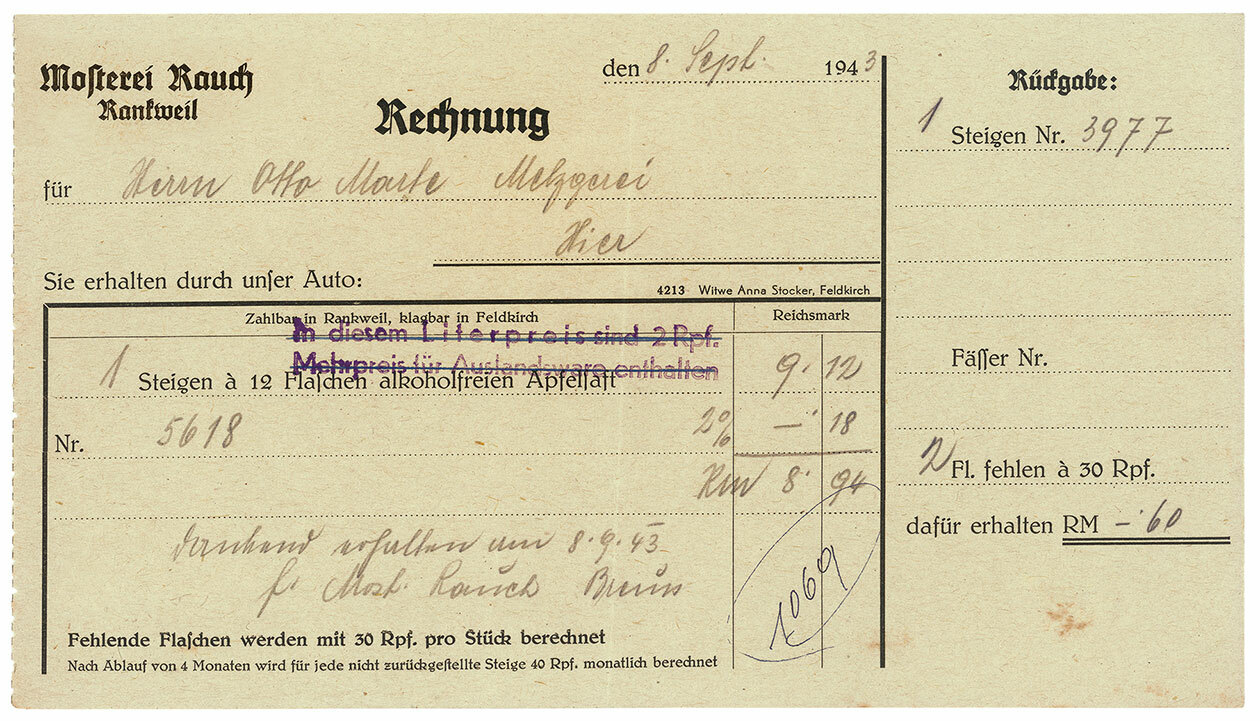 Mosterei Rauch
Rankweil
den 8. Sept. 1943
Rechnung
für Herrn Otto Marte Metzgerei
Hier
Sie erhalten durch unser Auto:
4213 Witwe Anna Stocker, Feldkirch
Zahlbar in Rankweil, klagbar in Feldkirch
Reichsmark
In diesem Literpreis sind 2 Rpf.
Mehrpreis für Auslandsware enthalten
1 Steigen à 12 Flaschen alkoholfreien Apfelsaft 9. 12
Nr. 5618 2% —. 18
RM 8. 94
dankend erhalten am 8.9.43
f. Most. Rauch
1069
Fehlende Flaschen werden mit 30 Rpf. pro Stück berechnet
Nach Ablauf von 4 Monaten wird für jede nicht zurückgestellte Steige 40 Rpf. monatlich berechnet
Rückgabe:
1 Steigen Nr. 3977
Fässer Nr.
2 Fl. fehlen à 30 Rpf.
dafür erhalten RM —.60